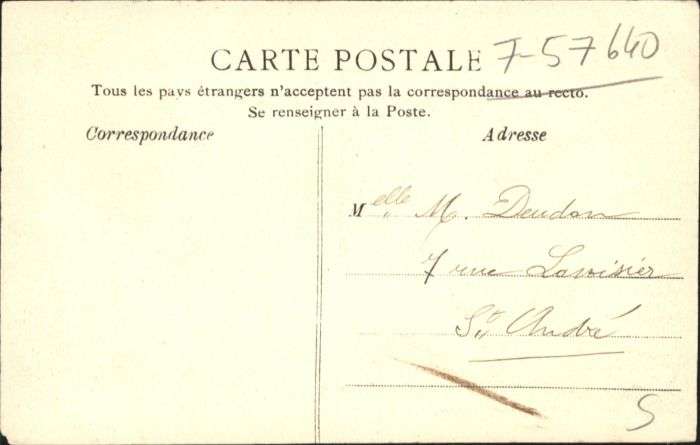 CARTE POSTALE 7-57640
Tous les pays étrangers n'acceptent pas la correspondance au recto.
Se renseigner à la Poste.
Correspondance
Adresse
Melle M. Deudon
7 rue Lavoisier
St André
S